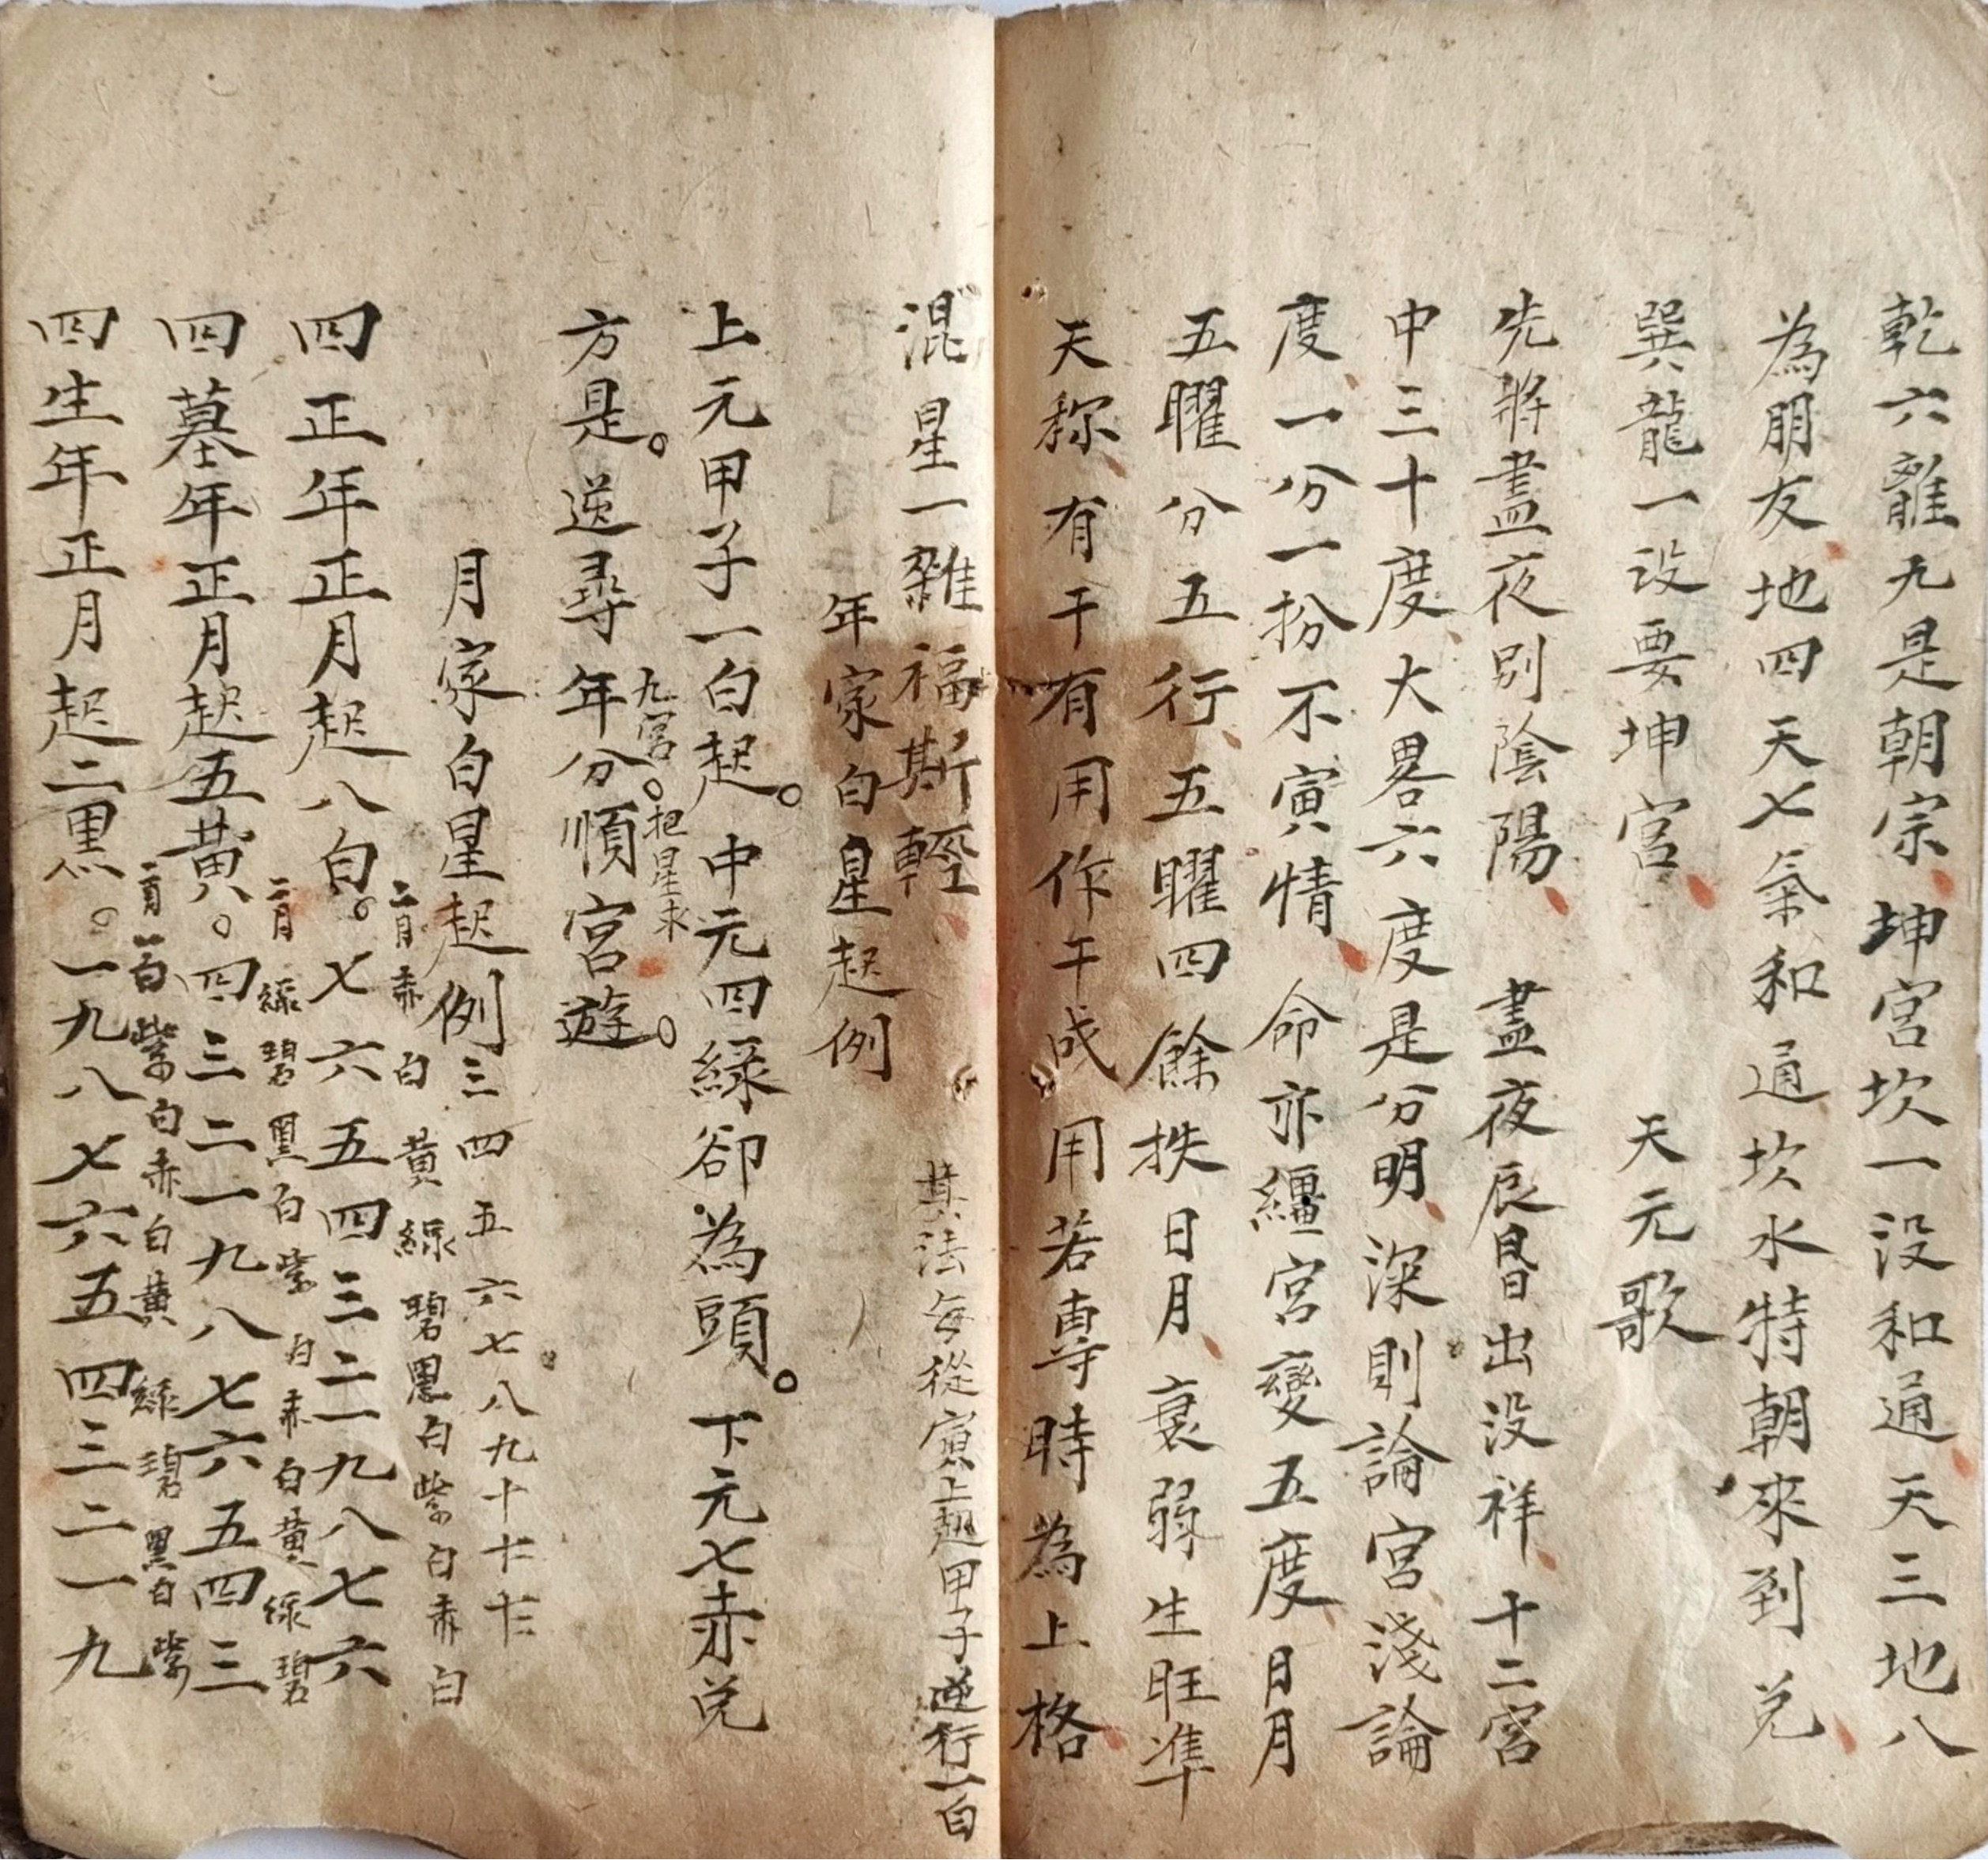 乾六離九是朝宗坤宮坎一没和通天三地八
為朋友地四天七氣和通坎水特朝來到兌
巽龍一没要坤宮　天元歌
先將晝夜別陰陽　晝夜辰昏出没祥十二宮
中三十度大畧六度是分明深則論宮淺論
度一分一扮不寅情　命亦纏宮變五度日月
五曜分五行五曜四餘抶日月衰弱生旺準
天稱有干有用作干成用若專時為上格
混星一雜福斯輕
其法每從寅上起甲子逆行一白
年家白星起例
上元甲子一白起。中元四綠卻為頭。下元七赤兌
九宮。把星求
方是。逆尋年分順宮遊。
月家白星起例
三四五六七八九十十一十二
二月赤白黃綠碧黑白紫白赤白
四正年正月起八白。七六五四三二一九八七六
二月綠碧黑白紫白赤白黃綠碧
四墓年正月起五黃。四三二一九八七六五四三
二月一白紫白赤白黃綠碧黑白紫
四生年正月起二黑。一九八七六五四三二一九